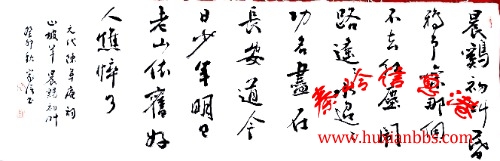 晨鷄初叫昏
鸦争噪那個
不去紅塵鬧
路遥水迢迢
功名盡在
長安道今
日少年明日
老山依舊好
人憔悴了
元代陳草庵詞
山坡羊晨鷄初叫
癸卯秋
www.hunianbbs.com